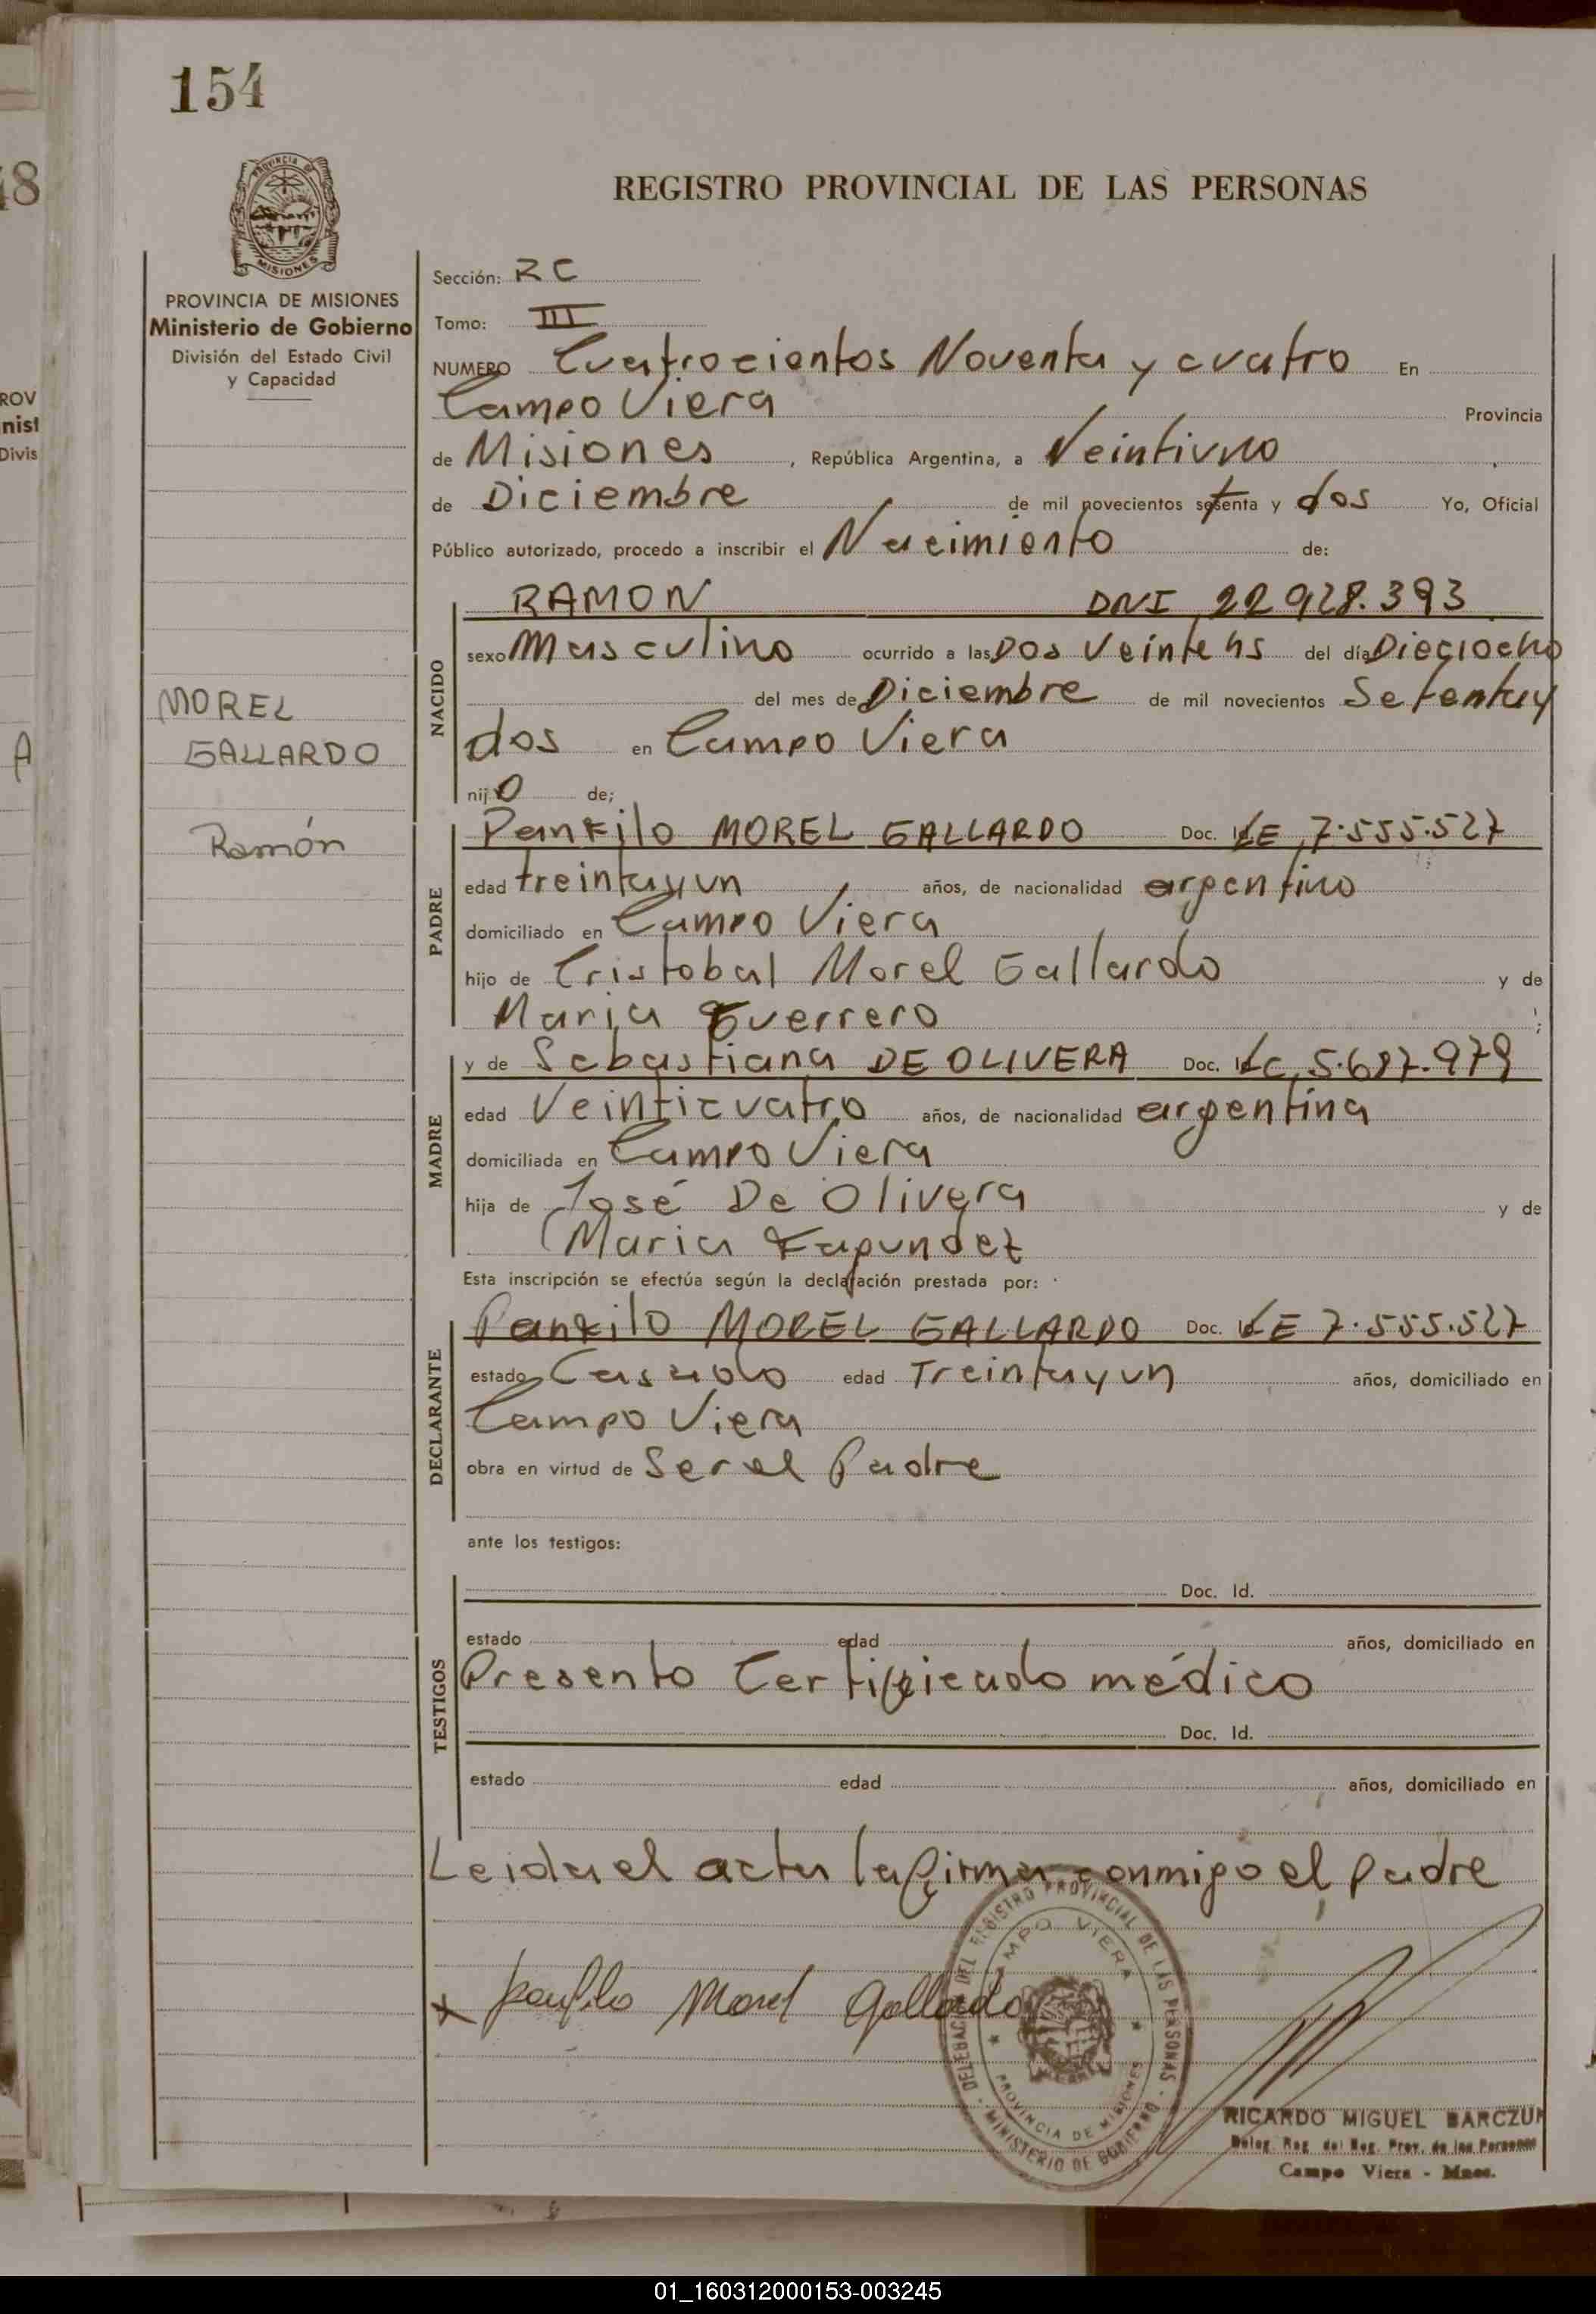 154
REGISTRO PROVINCIAL DE LAS PERSONAS
PROVINCIA DE MISIONES
Ministerio de Gobierno
División del Estado Civil
y Capacidad
MOREL
GALLARDO
Ramón
Sección: RC
Tomo: III
NUMERO Cuatrocientos Noventa y cuatro En
Campo Viera Provincia
de Misiones, República Argentina, a Veintiuno
de Diciembre de mil novecientos setenta y dos Yo, Oficial
Público autorizado, procedo a inscribir el Nacimiento de:
NACIDO
RAMON DNI 22.928.393
sexo Masculino ocurrido a las Dos Veinte hs del día Dieciocho
del mes de Diciembre de mil novecientos Setenta y
dos en Campo Viera
hijo de;
PADRE
Panfilo MOREL GALLARDO Doc. LE 7.555.527
edad treinta y un años, de nacionalidad argentino
domiciliado en Campo Viera
hijo de Cristobal Morel Gallardo y de
Maria Guerrero
MADRE
y de Sebastiana DE OLIVERA Doc. LC 5.687.979
edad Veinticuatro años, de nacionalidad argentina
domiciliada en Campo Viera
hija de José De Olivera y de
Maria Fagundez
Esta inscripción se efectúa según la declaración prestada por:
DECLARANTE
Panfilo MOREL GALLARDO Doc. LE 7.555.527
estado Casado edad Treinta y un años, domiciliado en
Campo Viera
obra en virtud de Ser el Padre
ante los testigos:
TESTIGOS
Doc. Id.
estado edad años, domiciliado en
Presento Certificado médico
Doc. Id.
estado edad años, domiciliado en
Leida el acta la firma conmigo el padre
x Panfilo Morel Gallardo
DELEGACION DEL REGISTRO PROVINCIAL DE LAS PERSONAS - MINISTERIO DE GOBIERNO
CAMPO VIERA
PROVINCIA DE MISIONES
RICARDO MIGUEL BARCZUK
Deleg. Reg. del Reg. Prov. de las Personas
Campo Viera - Mnes.
01_160312000153-003245